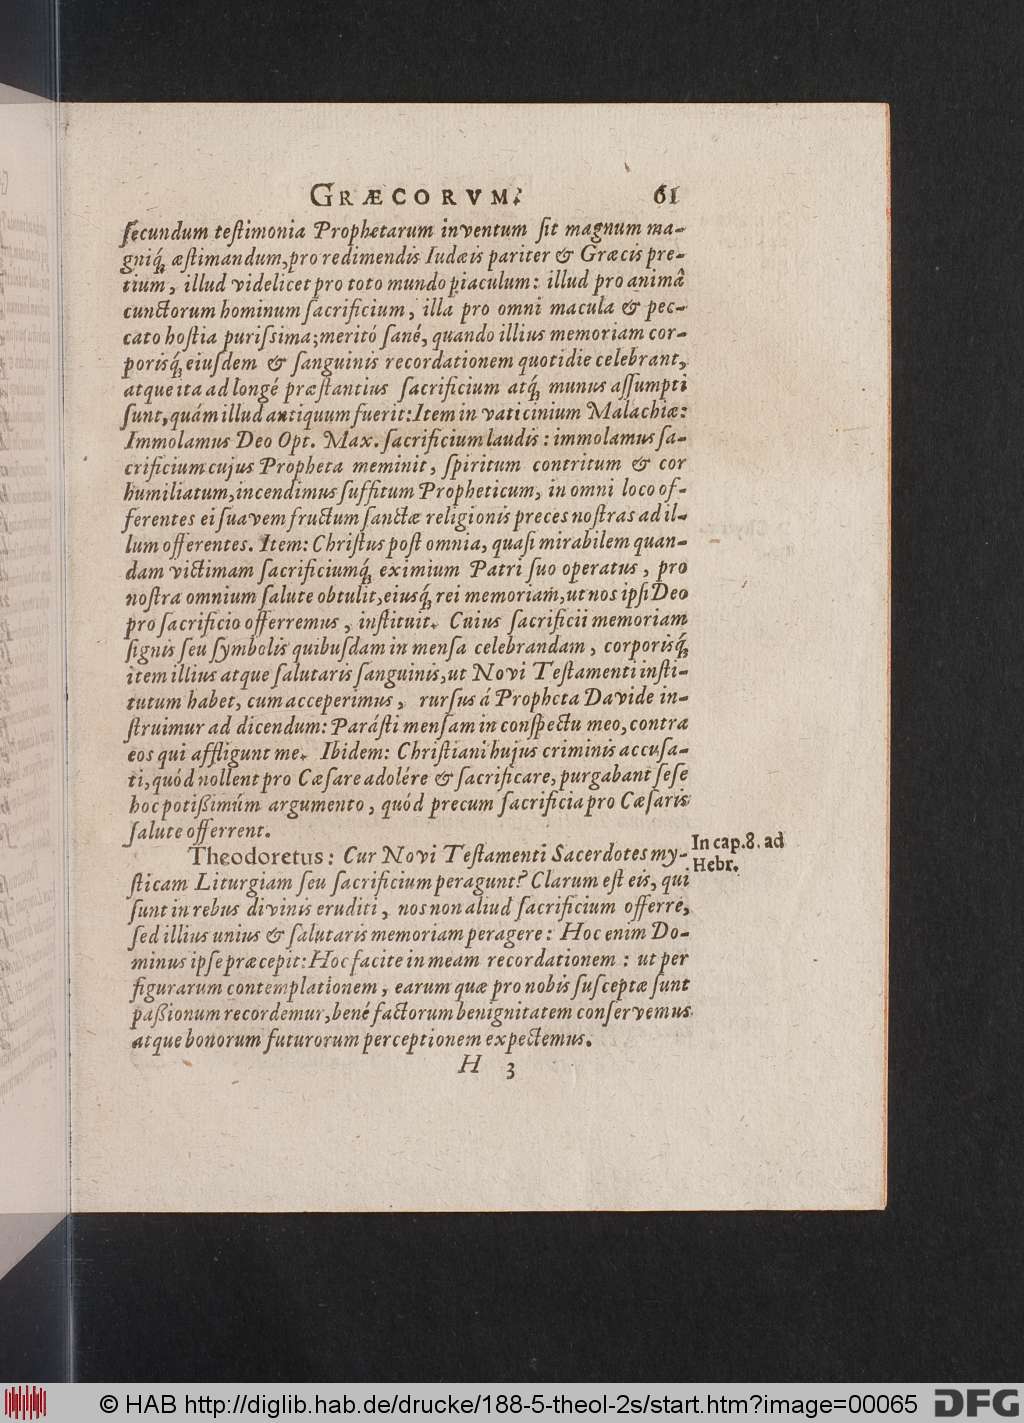 GRÆCORVM. 61
ſecundum teſtimonia Prophetarum inventum ſit magnum ma-
gniq́; æſtimandum, pro redimendis Iudæis pariter & Græcis pre-
tium, illud videlicet pro toto mundo piaculum: illud pro animâ
cunctorum hominum ſacrificium, illa pro omni macula & pec-
cato hoſtia puriſsima; meritó ſané, quando illius memoriam cor-
porisq́; eiuſdem & ſanguinis recordationem quotidie celebrant,
atque ita ad longé præſtantius ſacrificium atq́; munus aſſumpti
ſunt, quám illud antiquum fuerit: Item in vaticinium Malachiæ:
Immolamus Deo Opt. Max. ſacrificium laudis: immolamus ſa-
crificium cujus Propheta meminit, ſpiritum contritum & cor
humiliatum, incendimus ſuffitum Propheticum, in omni loco of-
ferentes ei ſuavem fructum ſanctæ religionis preces noſtras ad il-
lum offerentes. Item: Chriſtus poſt omnia, quaſi mirabilem quan-
dam victimam ſacrificiumq́; eximium Patri ſuo operatus, pro
noſtra omnium ſalute obtulit, eiusq́; rei memoriam, ut nos ipſi Deo
pro ſacrificio offerremus, inſtituit. Cuius ſacrificii memoriam
ſignis ſeu ſymbolis quibuſdam in menſa celebrandam, corporisq́;
item illius atque ſalutaris ſanguinis, ut Novi Teſtamenti inſti-
tutum habet, cum acceperimus, rurſus á Propheta Davide in-
ſtruimur ad dicendum: Paráſti menſam in conſpectu meo, contra
eos qui affligunt me. Ibidem: Chriſtiani hujus criminis accuſa-
ti, quód nollent pro Cæſare adolére & ſacrificare, purgabant ſeſe
hoc potißimúm argumento, quód precum ſacrificia pro Cæſaris
ſalute offerrent.
Theodoretus: Cur Novi Teſtamenti Sacerdotes my-
In cap. 8. ad
Hebr.
ſticam Liturgiam ſeu ſacrificium peragunt? Clarum eſt eis, qui
ſunt in rebus divinis eruditi, nos non aliud ſacrificium offerre,
ſed illius unius & ſalutaris memoriam peragere: Hoc enim Do-
minus ipſe præcepit: Hoc facite in meam recordationem: ut per
figurarum contemplationem, earum quæ pro nobis ſuſceptæ ſunt
paßionum recordemur, bené factorum benignitatem conſervemus
atque bonorum futurorum perceptionem expectemus.
H 3
© HAB http://diglib.hab.de/drucke/188-5-theol-2s/start.htm?image=00065
DFG